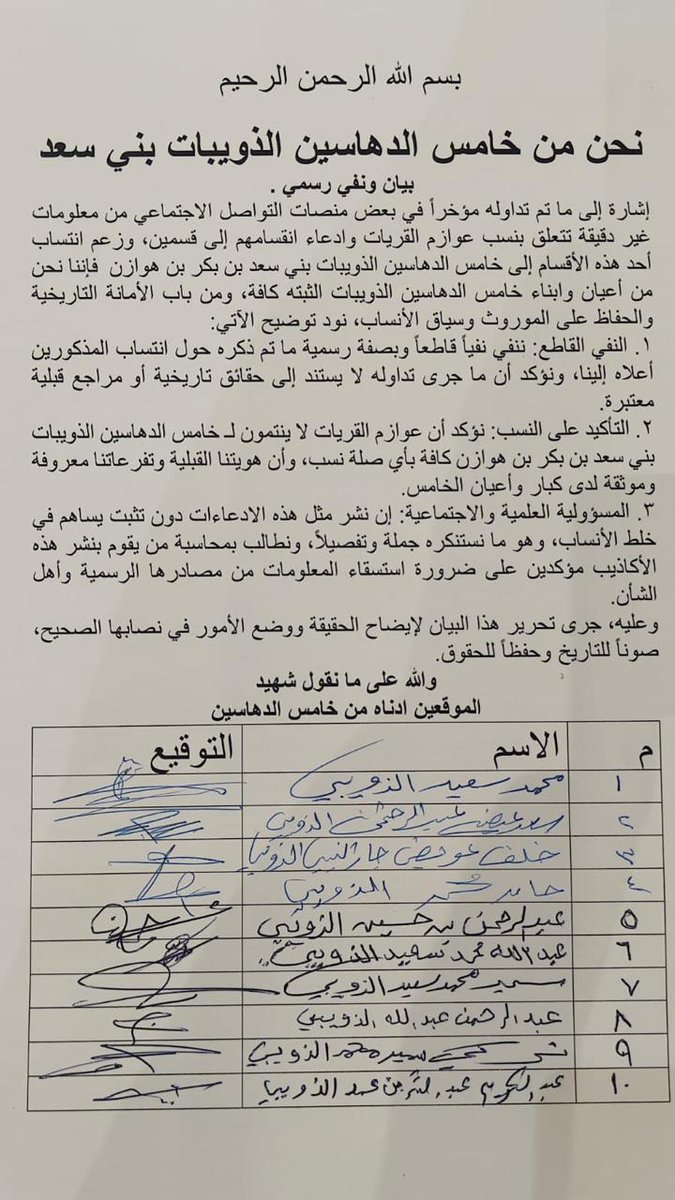 بسم الله الرحمن الرحيم
نحن من خامس الدهاسين الذويبات بني سعد
بيان ونفي رسمي .
إشارة إلى ما تم تداوله مؤخراً في بعض منصات التواصل الاجتماعي من معلومات
غير دقيقة تتعلق بنسب عوازم القريات وادعاء انقسامهم إلى قسمين، وزعم انتساب
أحد هذه الأقسام إلى خامس الدهاسين الذويبات بني سعد بن بكر بن هوازن فإننا نحن
من أعيان وابناء خامس الدهاسين الذويبات الثبته كافة، ومن باب الأمانة التاريخية
والحفاظ على الموروث وسياق الأنساب، نود توضيح الآتي:
١. النفي القاطع: ننفي نفياً قاطعاً وبصفة رسمية ما تم ذكره حول انتساب المذكورين
أعلاه إلينا، ونؤكد أن ما جرى تداوله لا يستند إلى حقائق تاريخية أو مراجع قبلية
معتبرة.
٢. التأكيد على النسب: نؤكد أن عوازم القريات لا ينتمون لـ خامس الدهاسين الذويبات
بني سعد بن بكر بن هوازن كافة بأي صلة نسب، وأن هويتنا القبلية وتفرعاتنا معروفة
وموثقة لدى كبار وأعيان الخامس.
٣. المسؤولية العلمية والاجتماعية: إن نشر مثل هذه الادعاءات دون تثبت يساهم في
خلط الأنساب، وهو ما نستنكره جملة وتفصيلاً، ونطالب بمحاسبة من يقوم بنشر هذه
الأكاذيب مؤكدين على ضرورة استسقاء المعلومات من مصادرها الرسمية وأهل
الشأن.
وعليه، جرى تحرير هذا البيان لإيضاح الحقيقة ووضع الأمور في نصابها الصحيح،
صوناً للتاريخ وحفظاً للحقوق.
والله على ما نقول شهيد
الموقعين ادناه من خامس الدهاسين
م الاسم التوقيع
١ محمد سعيد الذويبي
٢ عبد الرحمن الذويبي
٣ خلف عويض الذويبي
٤ حامد محمد الذويبي
٥ عبدالرحمن بن حسين الذويبي
٦ عبدالله محمد سعيد الذويبي
٧ سمير محمد سعيد الذويبي
٨ عبد الرحمن عبدالله الذويبي
٩ محمد الذويبي
١٠ عبدالكريم الذويبي